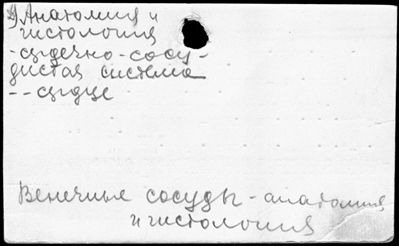 9) Анатомия и
гистология
- сердечно-сосу-
дистая система
-- сердце
Венечные сосуды - анатомия
и гистология